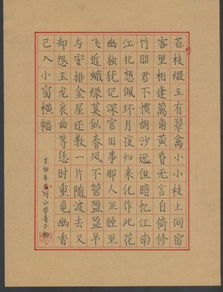 苔枝綴玉有翠禽小小枝上同宿
客里相逢籬角黃昏無言自倚修
竹昭君不慣胡沙遠但暗憶江南
江北想佩環月夜歸來化作此花
幽獨猶記深宮舊事那人正睡里
飛近蛾綠莫似春風不管盈盈早
與安排金屋還教一片隨波去又
却怨玉龍哀曲等恁時重覓幽香
已入小窗橫幅